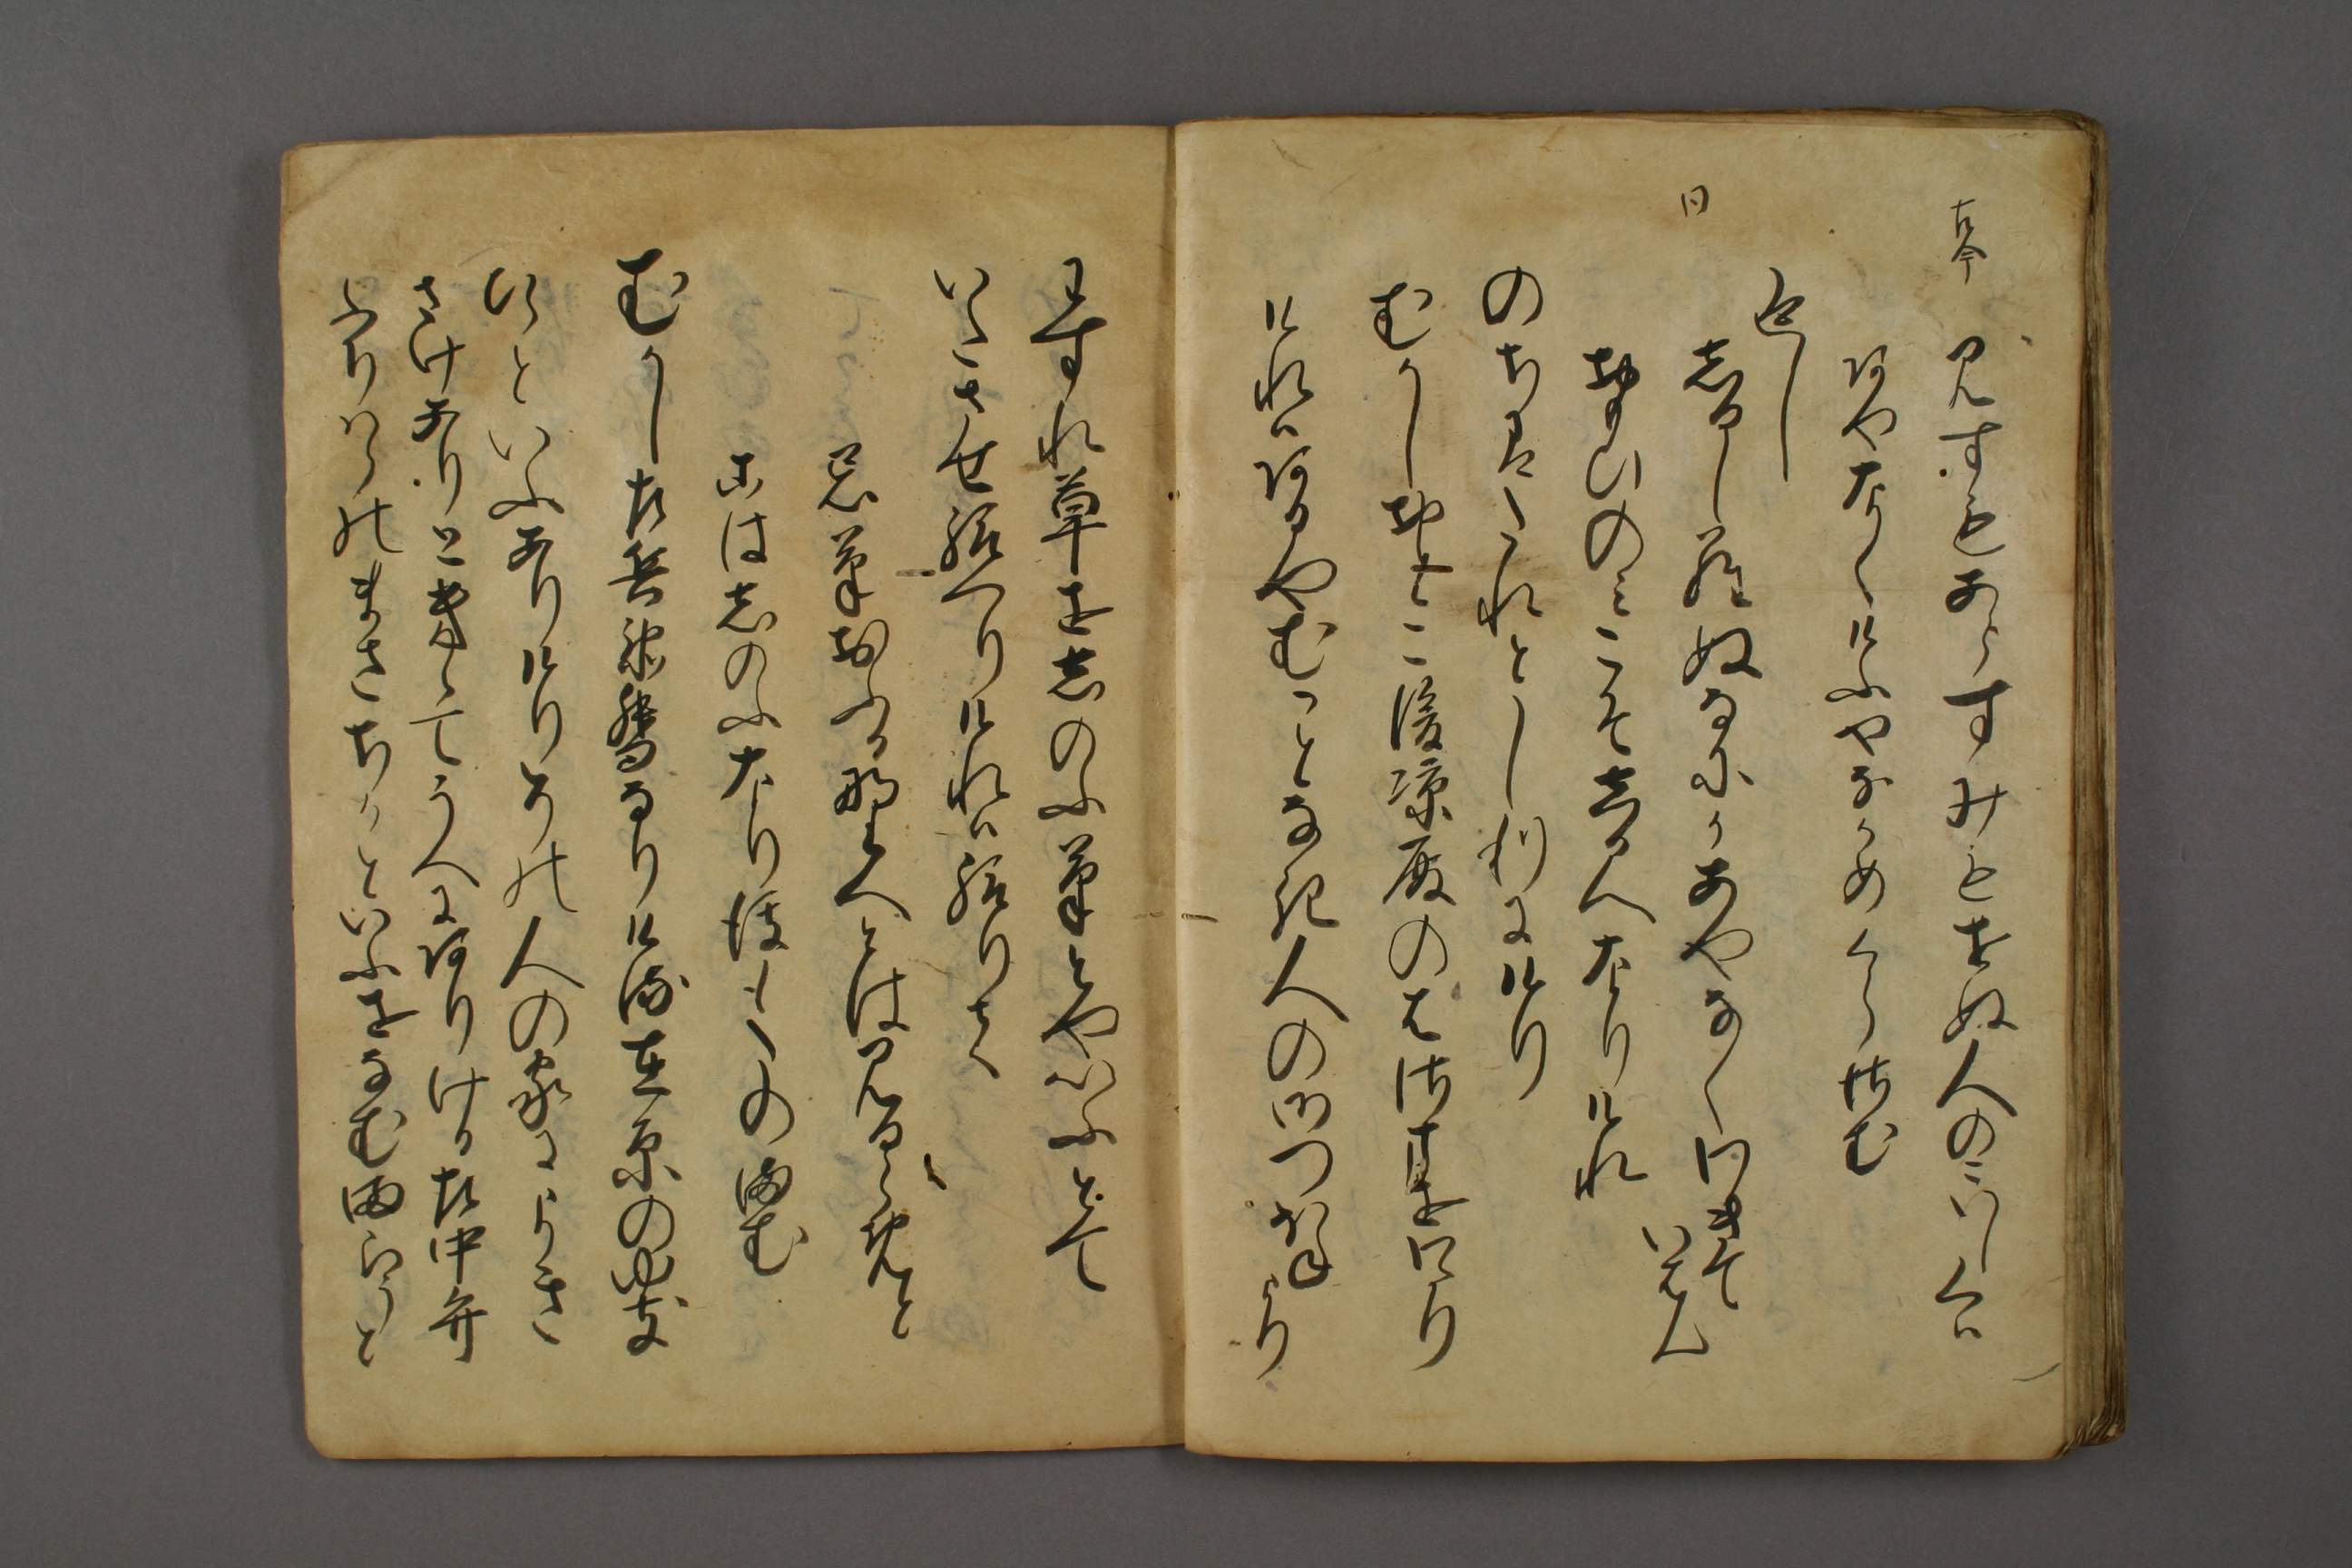 古今
見すもあらすみもせぬ人のこひしくは
あやなくけふやなかめくらさむ
返し
同
しるしらぬなにかあやなくわきていはん
おもひのみこそしるへなりけれ
のちはたれとしりにけり
むかしおとこ後涼殿のはさまをわたり
けれはあるやむことなき人の御つほねより
わすれ草をしのふ草とやいふとて
いたさせ給へりけれは給りて
忘草おふる野へとは見るらめと
こはしのふなり後もたのまむ
むかし左兵衛督なりける在原のゆき
ひらといふありけりその人の家によきさ
さけありときゝてうへにありける左中弁
ふちはらのまさちかといふをなむまらうと